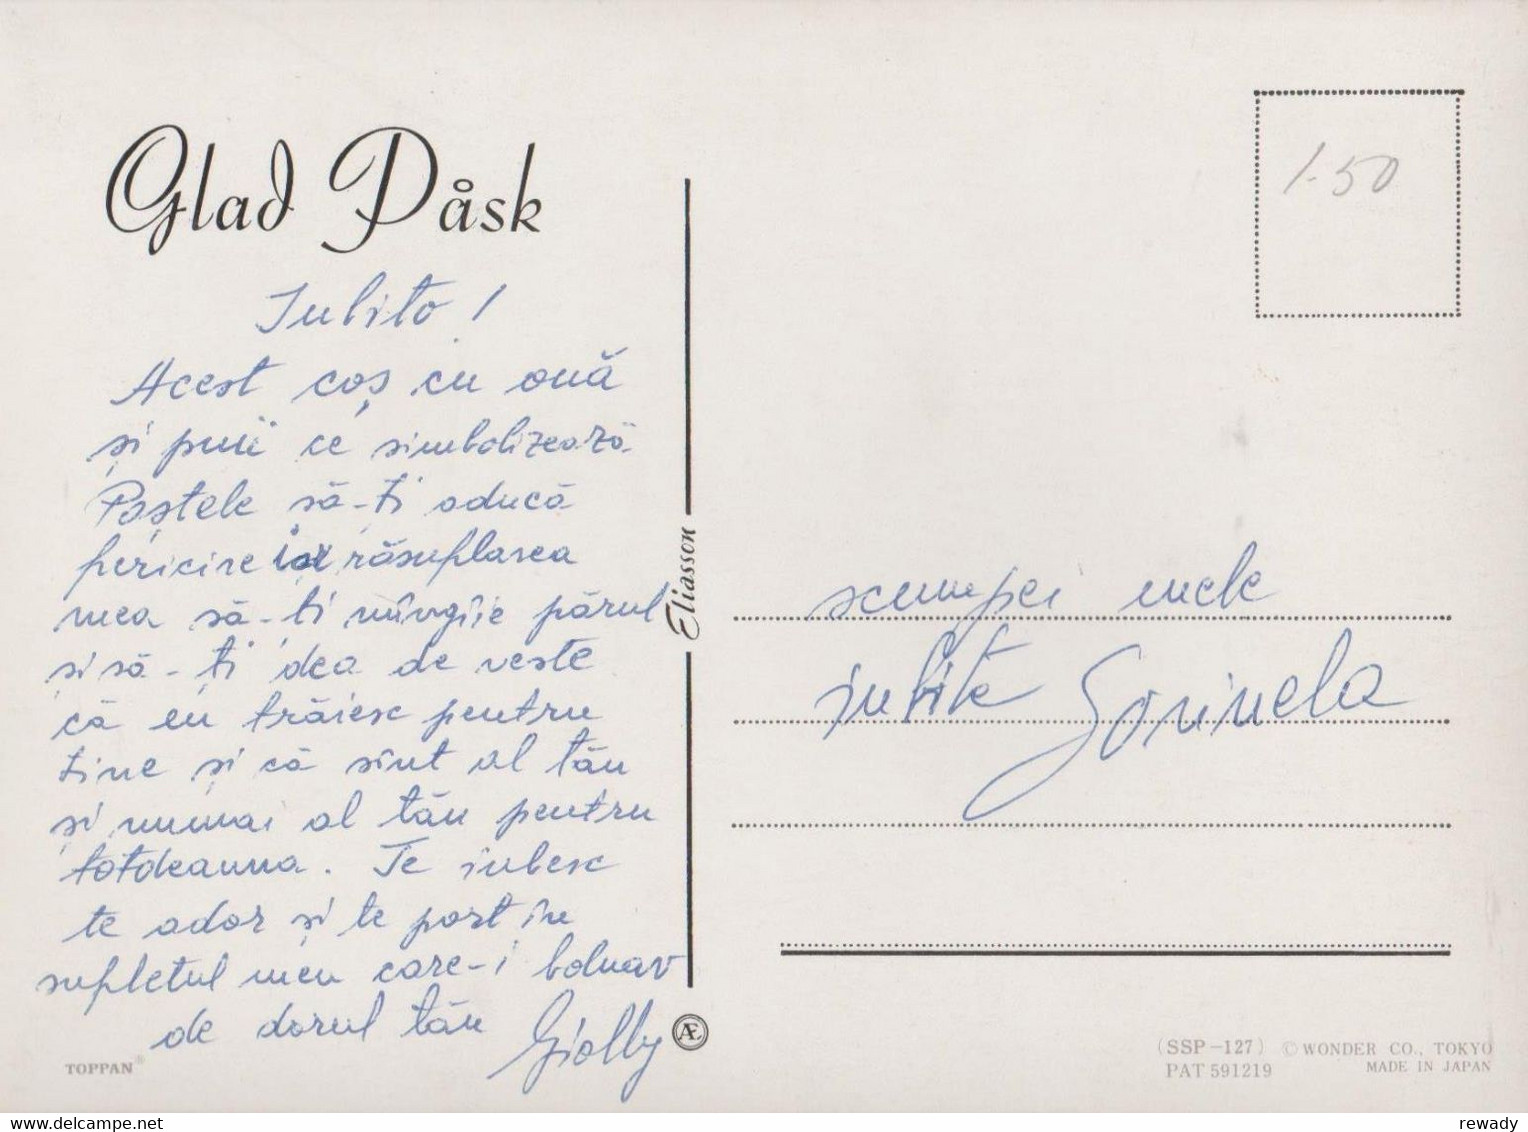 Glad Påsk
Iubito!
Acest coș cu ouă
și puii ce simbolizează
Paștele să-ți aducă
fericire iar răsuflarea
mea să-ți mîngîie părul
și să-ți dea de veste
că eu trăiesc pentru
tine și că sînt al tău
și numai al tău pentru
totdeauna. Te iubesc
te ador și te port în
sufletul meu care-i bolnav
de dorul tău
Giolly
TOPPAN®
Eliasson
Æ
1-50
scumpei mele
iubite Sorinela
(SSP-127) © WONDER CO., TOKYO
PAT 591219 MADE IN JAPAN
www.delcampe.net
rewady